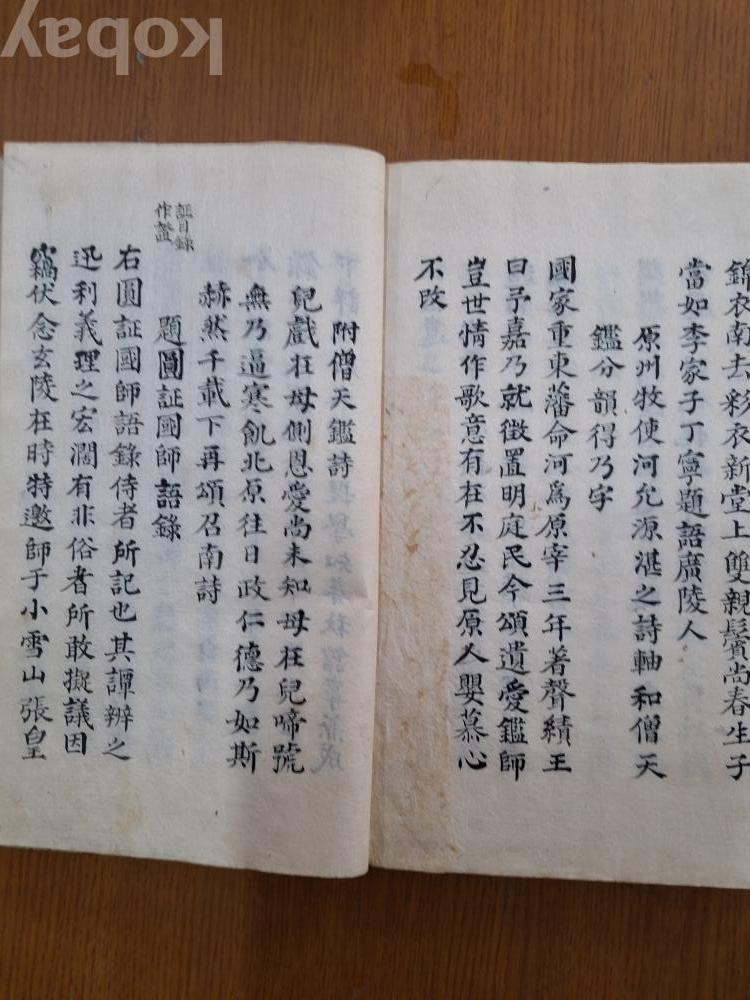 錦衣南去彩衣新堂上雙親鬢尚春生子
當如李家子丁寧題語廣陵人
原州牧使河允源湛之詩軸和僧天
鑑分韻得乃字
國家重東藩命河爲原宰三年著聲績王
曰予嘉乃就徵置明庭民今頌遺愛鑑師
豈世情作歌意有在不忍見原人嬰慕心
不改
附僧天鑑詩
兒戲在母側恩愛尚未知母在兒啼號
無乃逼寒飢北原往日政仁德乃如斯
赫然千載下再頌召南詩
証目錄
作證
題圓証國師語錄
右圓証國師語錄侍者所記也其譚辨之
迅利義理之宏濶有非俗者所敢擬議因
竊伏念玄陵在時特邀師于小雪山張皇
kobay